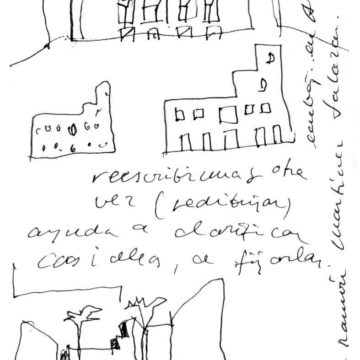 reescribir una y otra
vez (redibujar)
ayuda a clarificar
las ideas, a fijarlas.
Ramón Martínez Salazar.